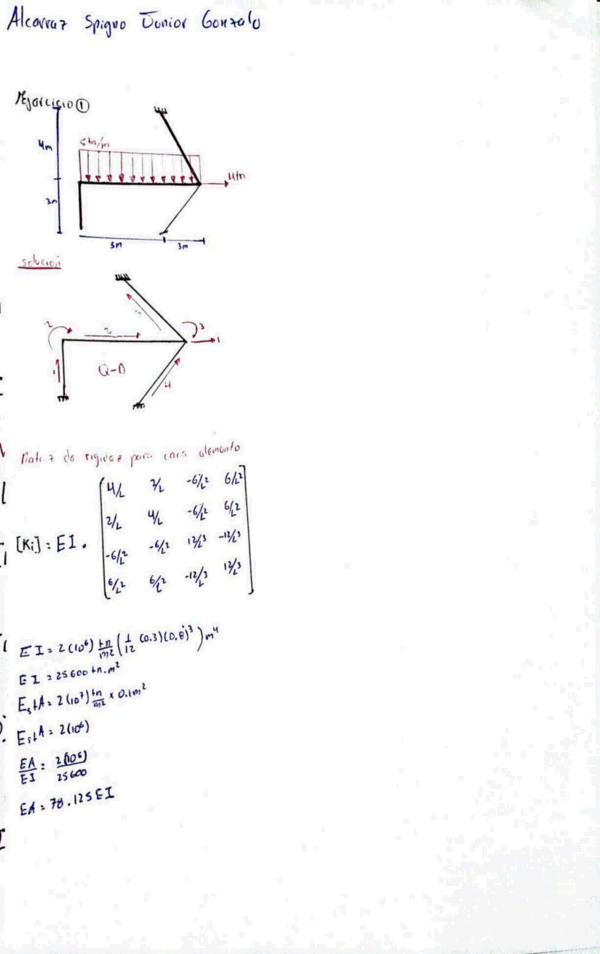 Alcarraz Spigno Junior Gonzalo
Ejercicio ①
4m
5 tn/m
3m
4tn
5m
3m
solución
2
2
3
3
1
1
Q-D
4
Matriz de rigidez para cada elemento
[Ki] = EI .
4/L 2/L -6/L² 6/L²
2/L 4/L -6/L² 6/L²
-6/L² -6/L² 12/L³ -12/L³
6/L² 6/L² -12/L³ 12/L³
EI = 2(10⁶) tn/m2 (1/12 (0.3)(0.8)³) m⁴
EI = 25600 tn.m²
EstA = 2(10⁷) tn/m2 x 0.1m²
EstA = 2(10⁶)
EA/EI = 2(10⁶)/25600
EA = 78.125EI